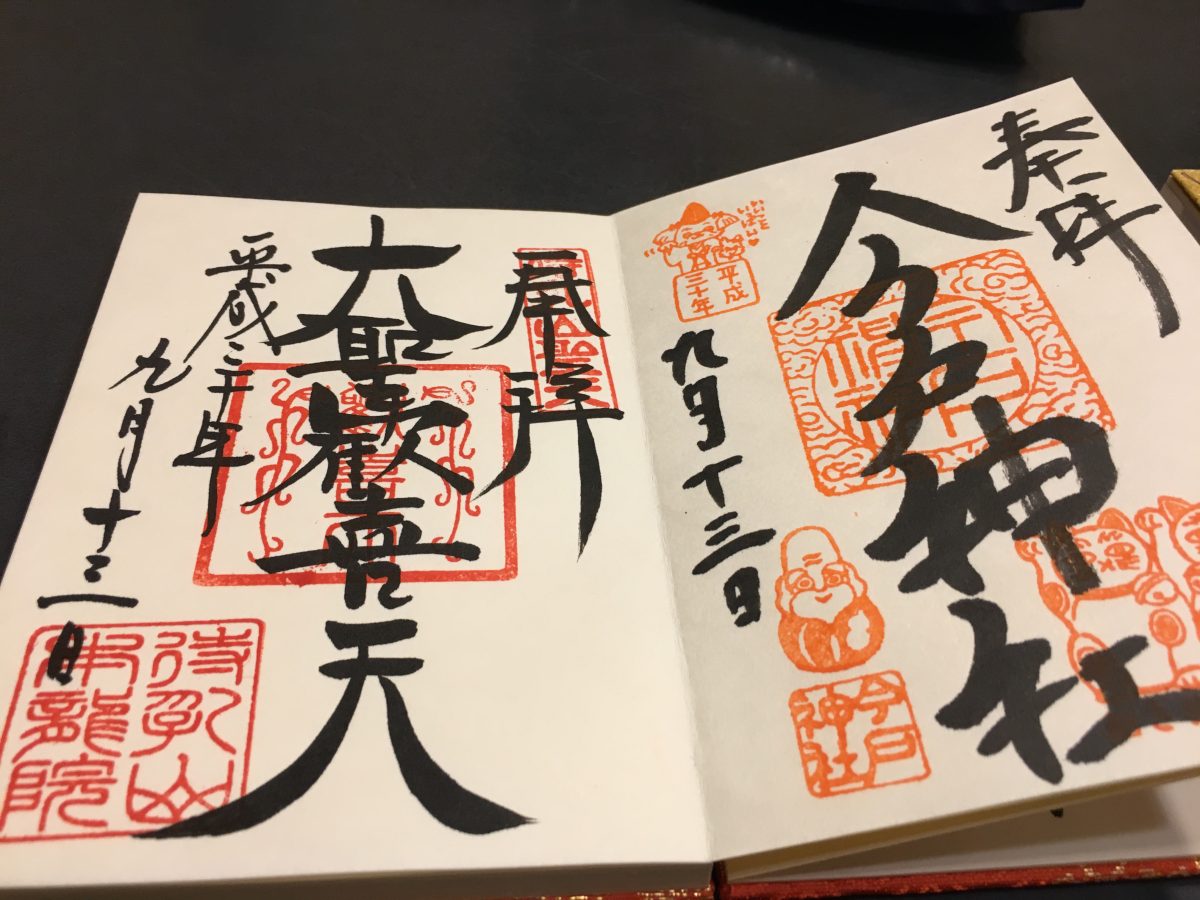 奉拝
今戸神社
今戸
神社
平成
三十年
九月十三日
奉拝
大聖歓喜天
平成三十年
九月十三日
待乳山
本龍院